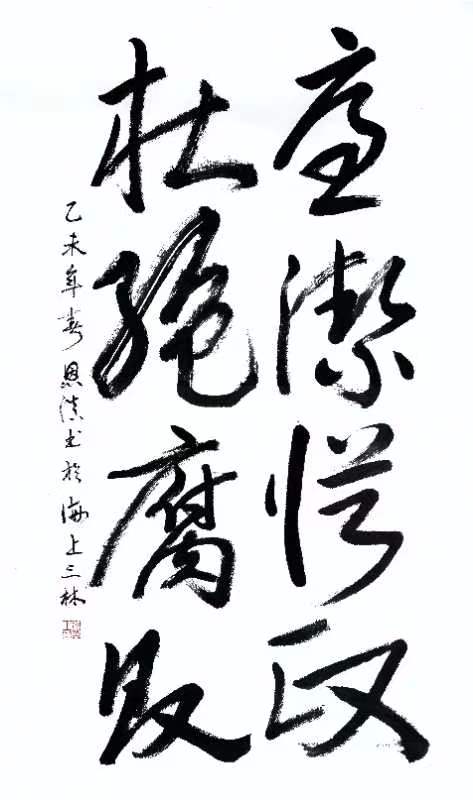 廉潔從政
杜絕腐敗
乙未年春恩书於海上三林